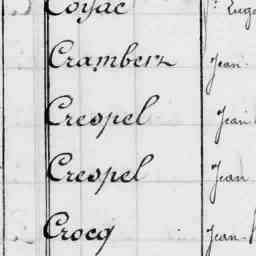 Coyac
Crambert Jean
Crespel Jean
Crespel Jean
Crocq Jean-